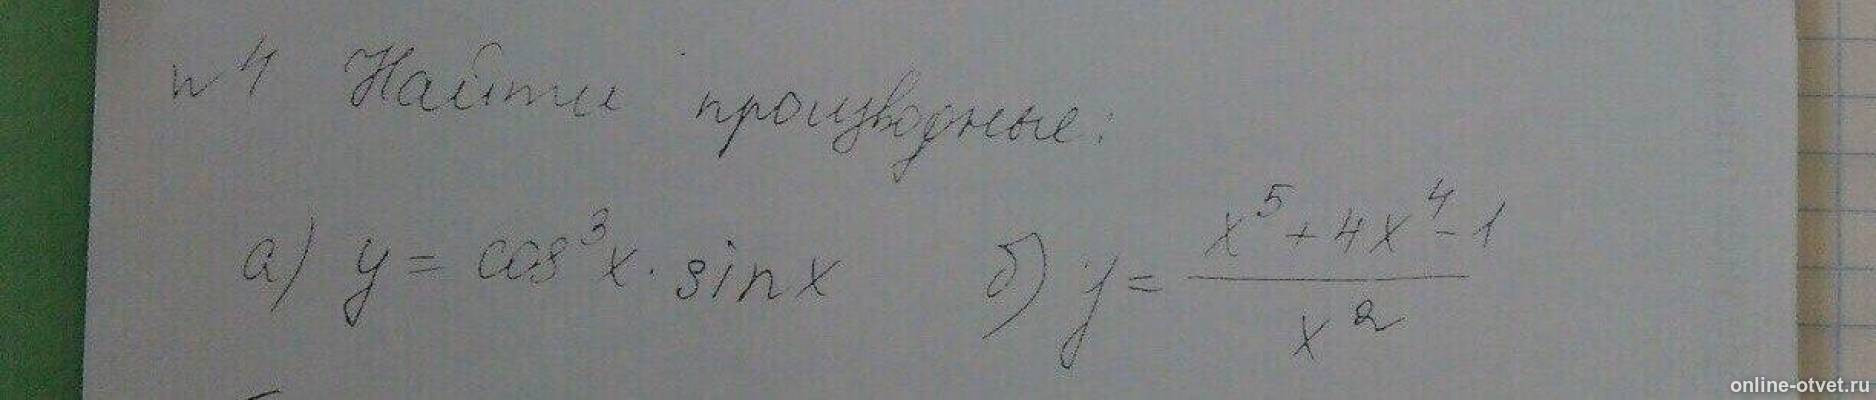 №4 Найти производные:
а) y = cos³x · sin x б) y = (x⁵ + 4x⁴ - 1) / x²
online-otvet.ru